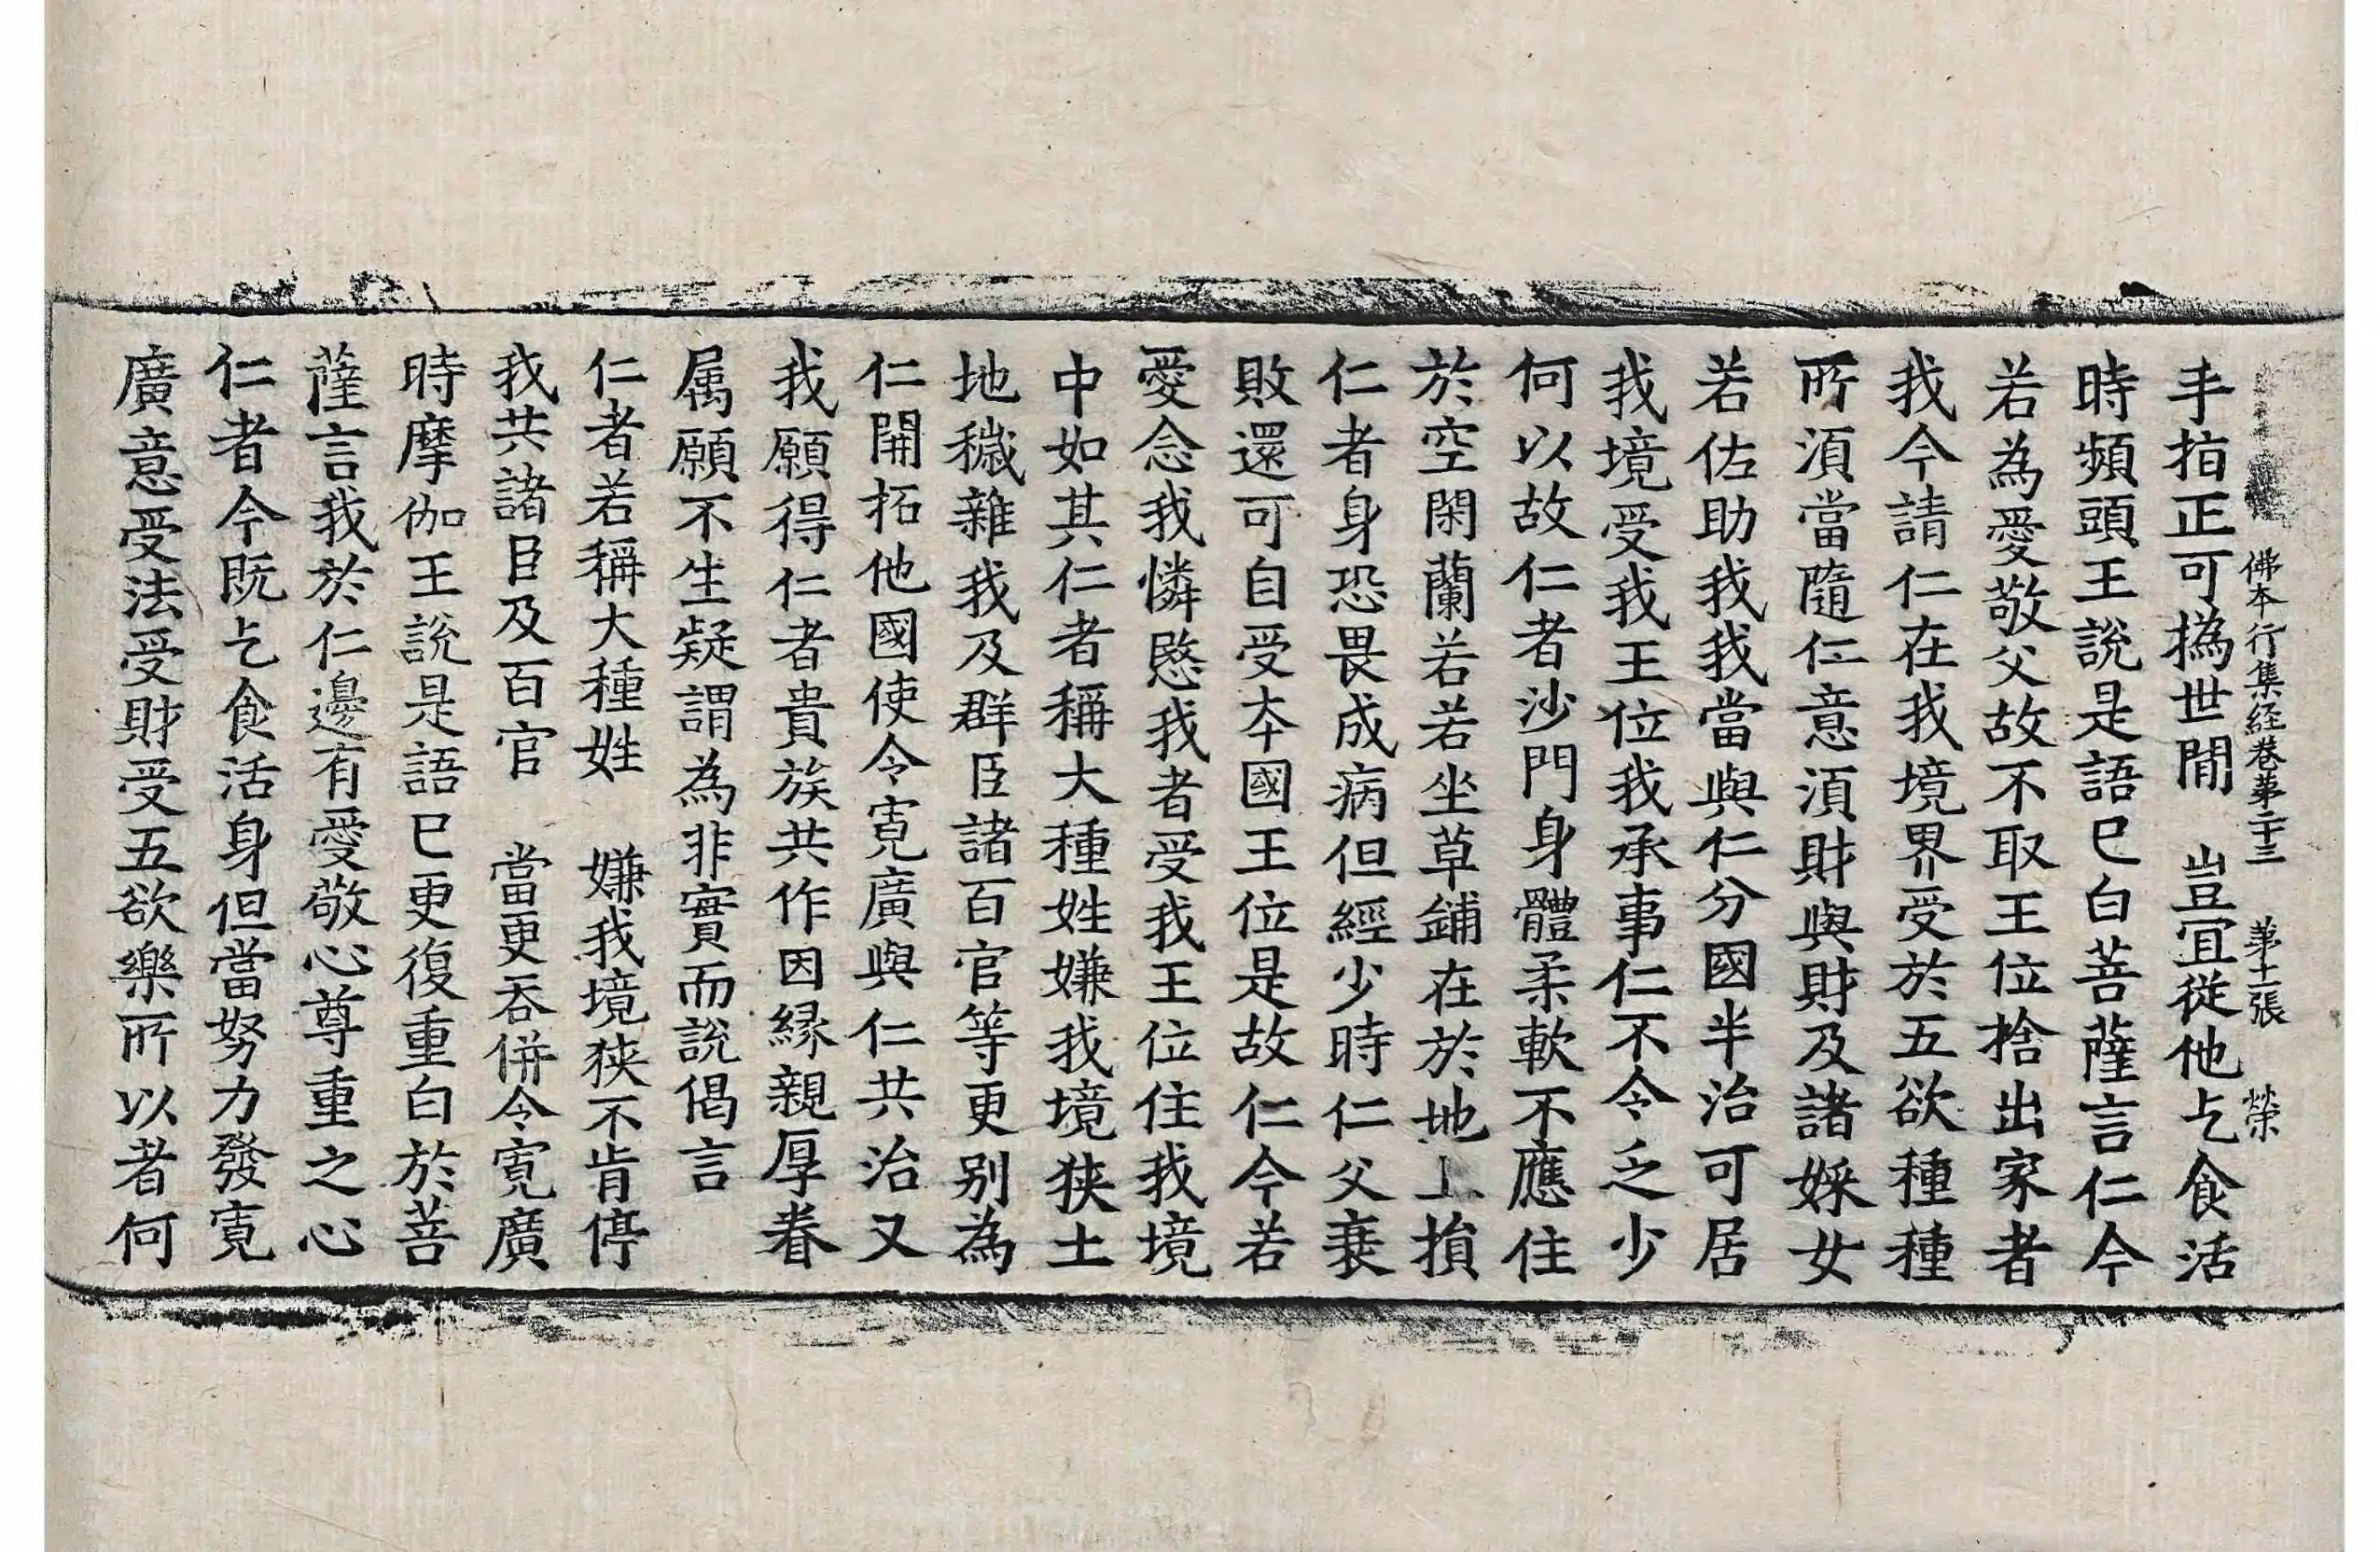 佛本行集経巻第二十三　第十二張　荣
手指正可撝世間　豈宜從他乞食活
時頻頭王說是語已白菩薩言仁今
若為愛敬父故不取王位捨出家者
我今請仁在我境界受於五欲種種
所湏當隨仁意湏財與財及諸婇女
若佐助我我當與仁分國半治可居
我境受我王位我承事仁不令乏少
何以故仁者沙門身體柔軟不應住
於空閑蘭若若坐草鋪在於地上損
仁者身恐畏成病但經少時仁父衰
敗還可自受本國王位是故仁今若
愛念我憐愍我者受我王位住我境
中如其仁者稱大種姓嫌我境狹土
地穢雜我及群臣諸百官等更別為
仁開拓他國使令寬廣與仁共治又
我願得仁者貴族共作因緣親厚眷
属願不生疑謂為非實而說偈言
仁者若稱大種姓　嫌我境狹不肯停
我共諸臣及百官　當更吞併令寬廣
時摩伽王說是語已更復重白於菩
薩言我於仁邊有愛敬心尊重之心
仁者今既乞食活身但當努力發寬
廣意受法受財受五欲樂所以者何